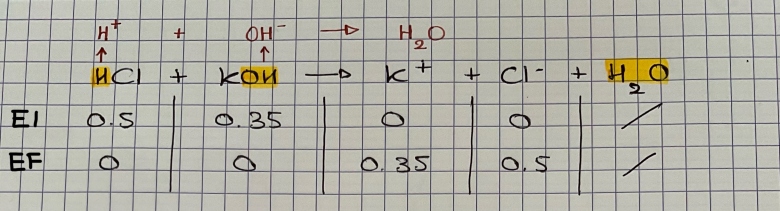 H⁺ + OH⁻ → H₂O
HCl + KOH → K⁺ + Cl⁻ + H₂O
EI 0.5 0.35 0 0 /
EF 0 0 0.35 0.5 /